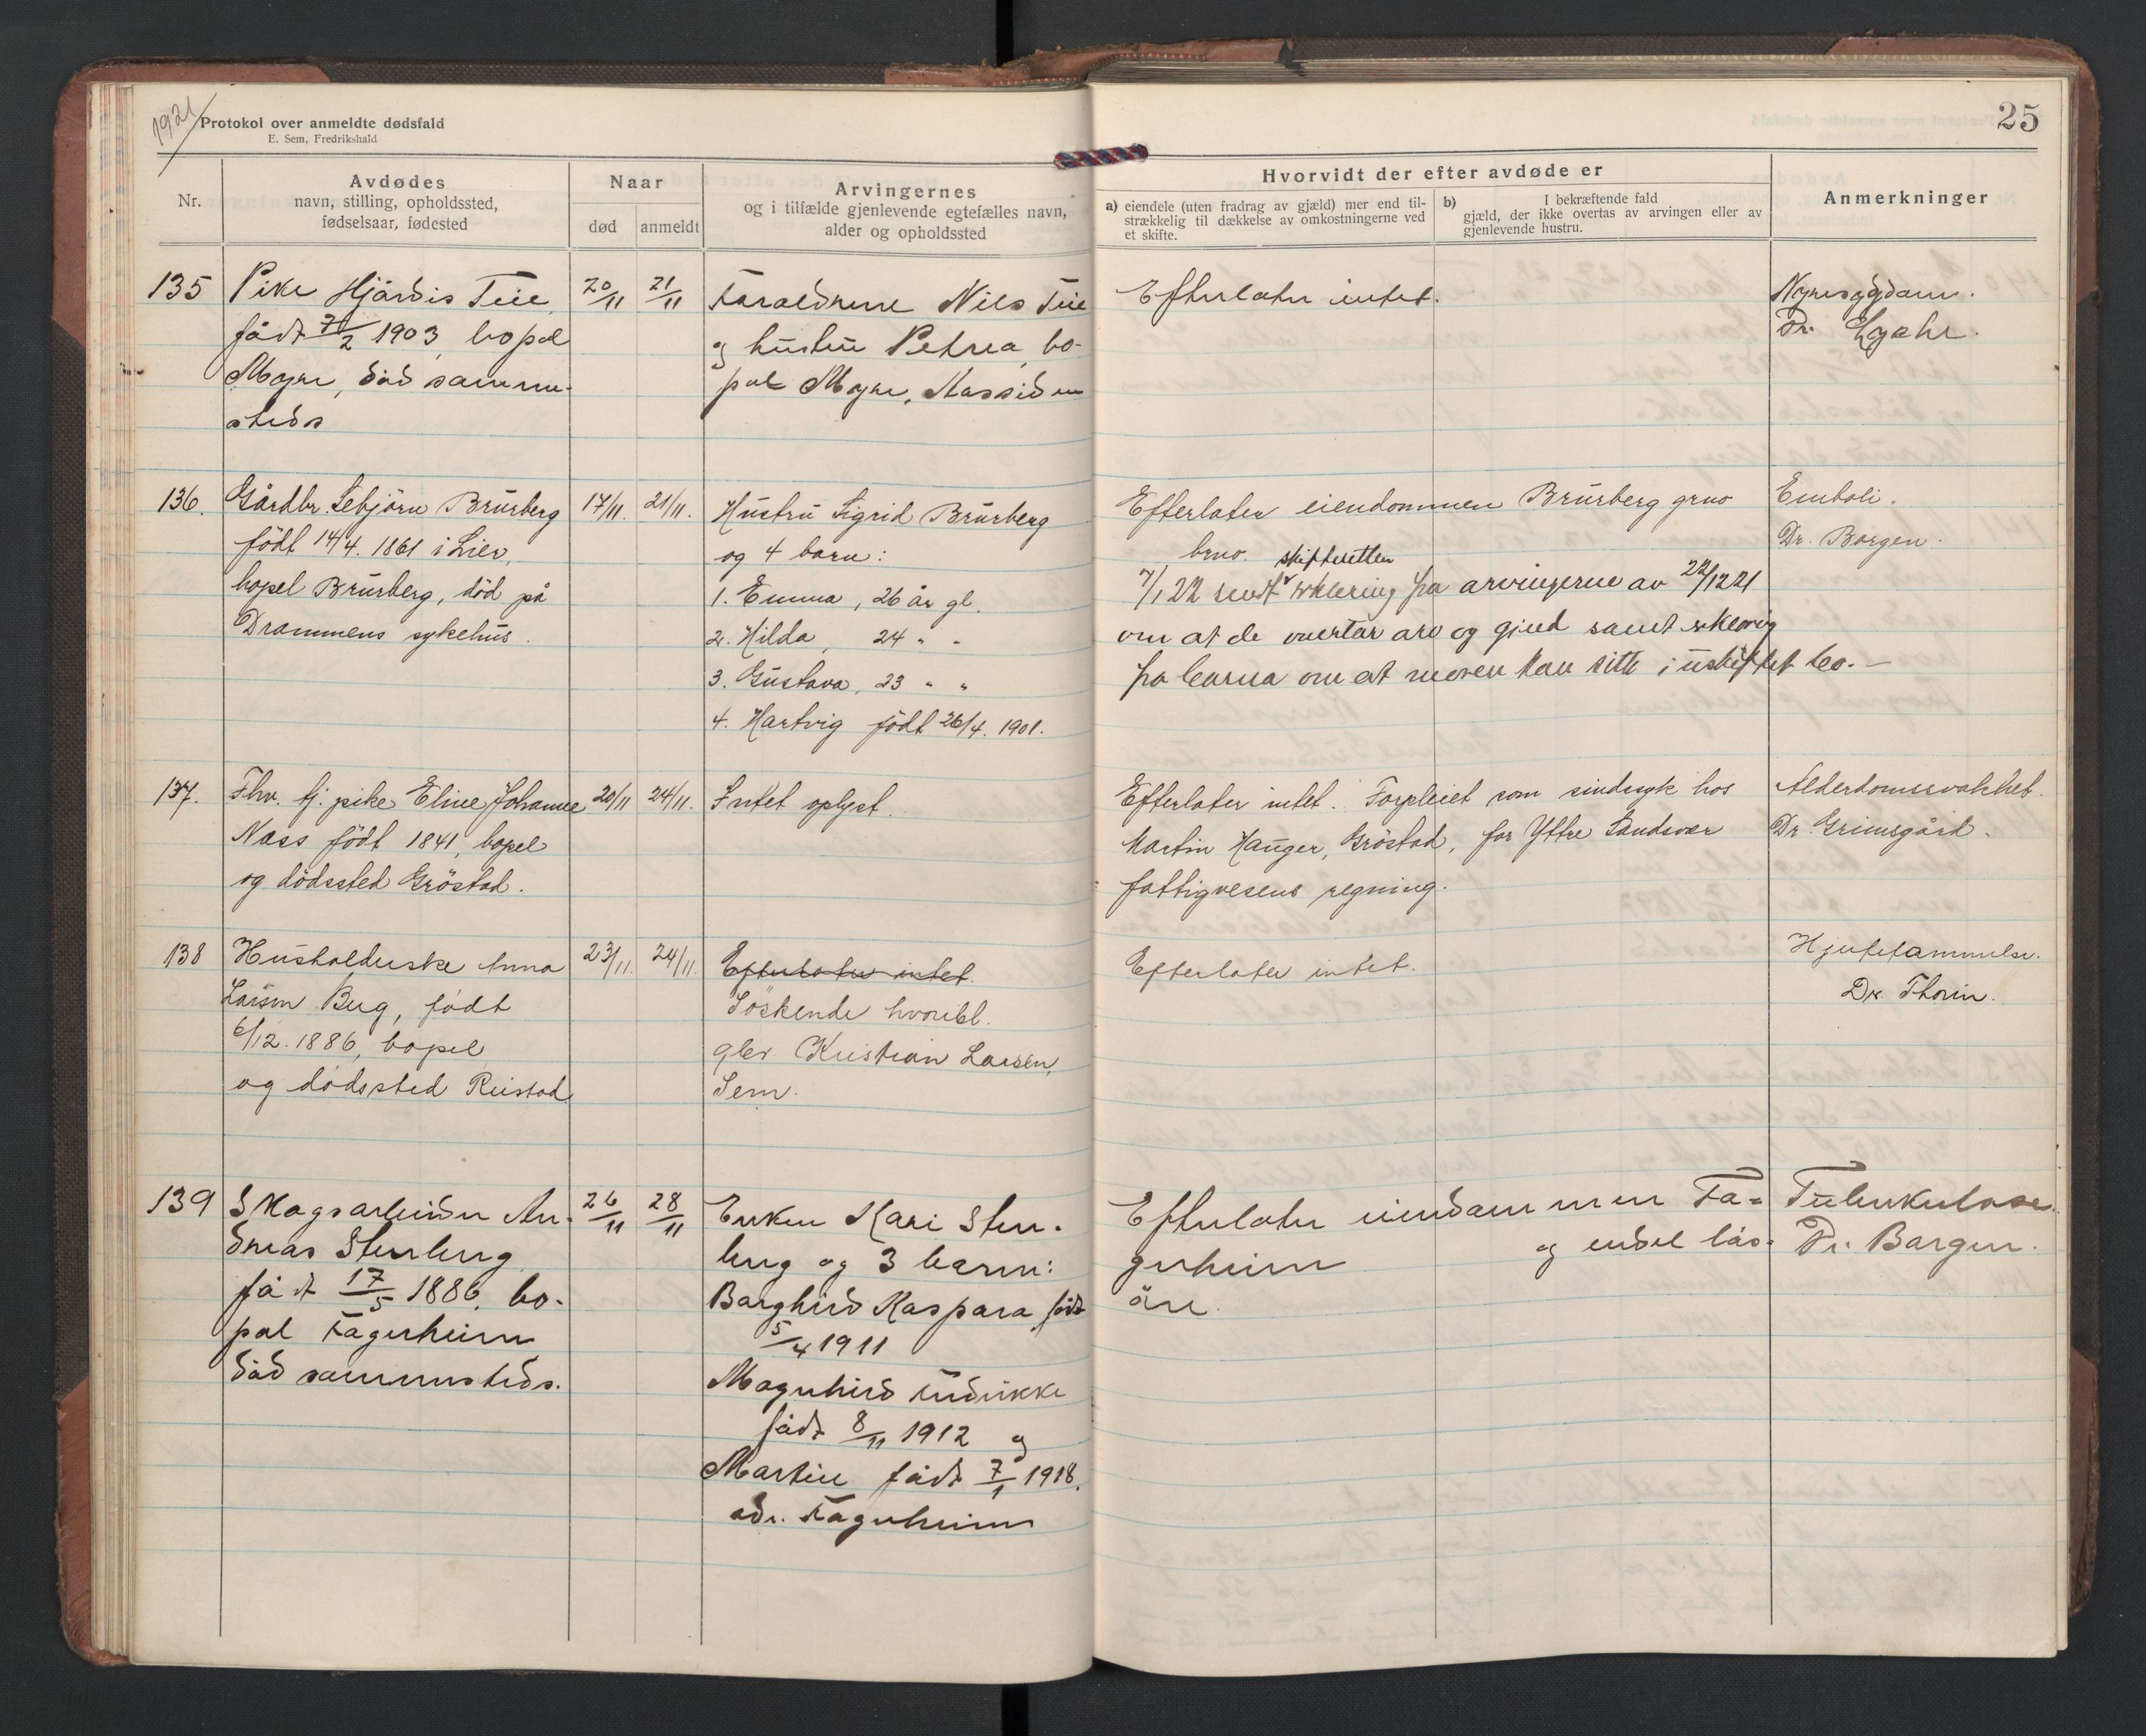 1921
Protokol over anmeldte dødsfald
E. Sem, Fredrikshald
25
Nr.
Avdødes
navn, stilling, opholdssted,
fødselsaar, fødested
Naar
død
anmeldt
Arvingernes
og i tilfælde gjenlevende egtefælles navn,
alder og opholdssted
Hvorvidt der efter avdøde er
a) eiendele (uten fradrag av gjæld) mer end til-
strækkelig til dækkelse av omkostningerne ved
et skifte.
b) I bekræftende fald
gjæld, der ikke overtas av arvingen eller av
gjenlevende hustru.
Anmerkninger
135
Pike Hjördis Teie,
född 7/2 1903, bopel
Moyer, död samme-
steds
20/11
21/11
Foreldrene Nils Teie
og hustru Petrea, bo-
pel Moyer,
Efterlater intet.
Nyresygdom.
Dr.
136.
Gårdbr. Lebjörn Brürberg
födt 14/4. 1861 i Lier,
bopel Brürberg, död på
Drammens sykehus.
17/11.
21/11.
Hustru Sigrid Brürberg
og 4 barn:
1. Emma, 26 år gl.
2. Hilda, 24 " "
3. Gustava, 23 " "
4. Hartvig födt 26/4. 1901.
Efterlater eiendommen Brürberg grno
brno.
7/1 22 sendt skifteretten erklæring fra arvingerne av 22/12 21
om at de overtar arv og gjæld samt erklæring
fra barna om at moren kan sitte i uskiftet bo. —
Emboli.
Dr. Borgen.
137.
Fhv. tj. pike Eline Johanne
Næss födt 1841, bopel
og dödssted Gröstad.
20/11
24/11.
Intet oplyst.
Efterlater intet. Forpleiet som sindssyk hos
Martin Hauger, Gröstad, for Yttre Sandsvær
fattigvesens regning.
Alderdomssvakhet.
Dr. Grimsgård.
138
Husholderske Anna
Larsen Berg, födt
6/12. 1886, bopel
og dödssted Reistad.
23/11.
24/11.
Efterlater intet.
Söskende hvoribl.
Kristian Larsen,
Sem.
Efterlater intet.
Hjertelammelse.
Dr. Thorin.
139
Skogsarbeider An-
dreas Stenberg
födt 17/5 1886, bo-
pel Fagerheim
död sammesteds.
26/11
28/11
Enken Kari Sten-
berg og 3 barn:
Borghild Kaspara födt
5/4 1911
Magnhild
födt 8/11 1912 og
Martin födt 7/1 1918.
adr. Fagerheim
Efterlater eiendommen Fa-
gerheim og endel lös-
öre.
Tuberkulose.
Dr. Borgen.